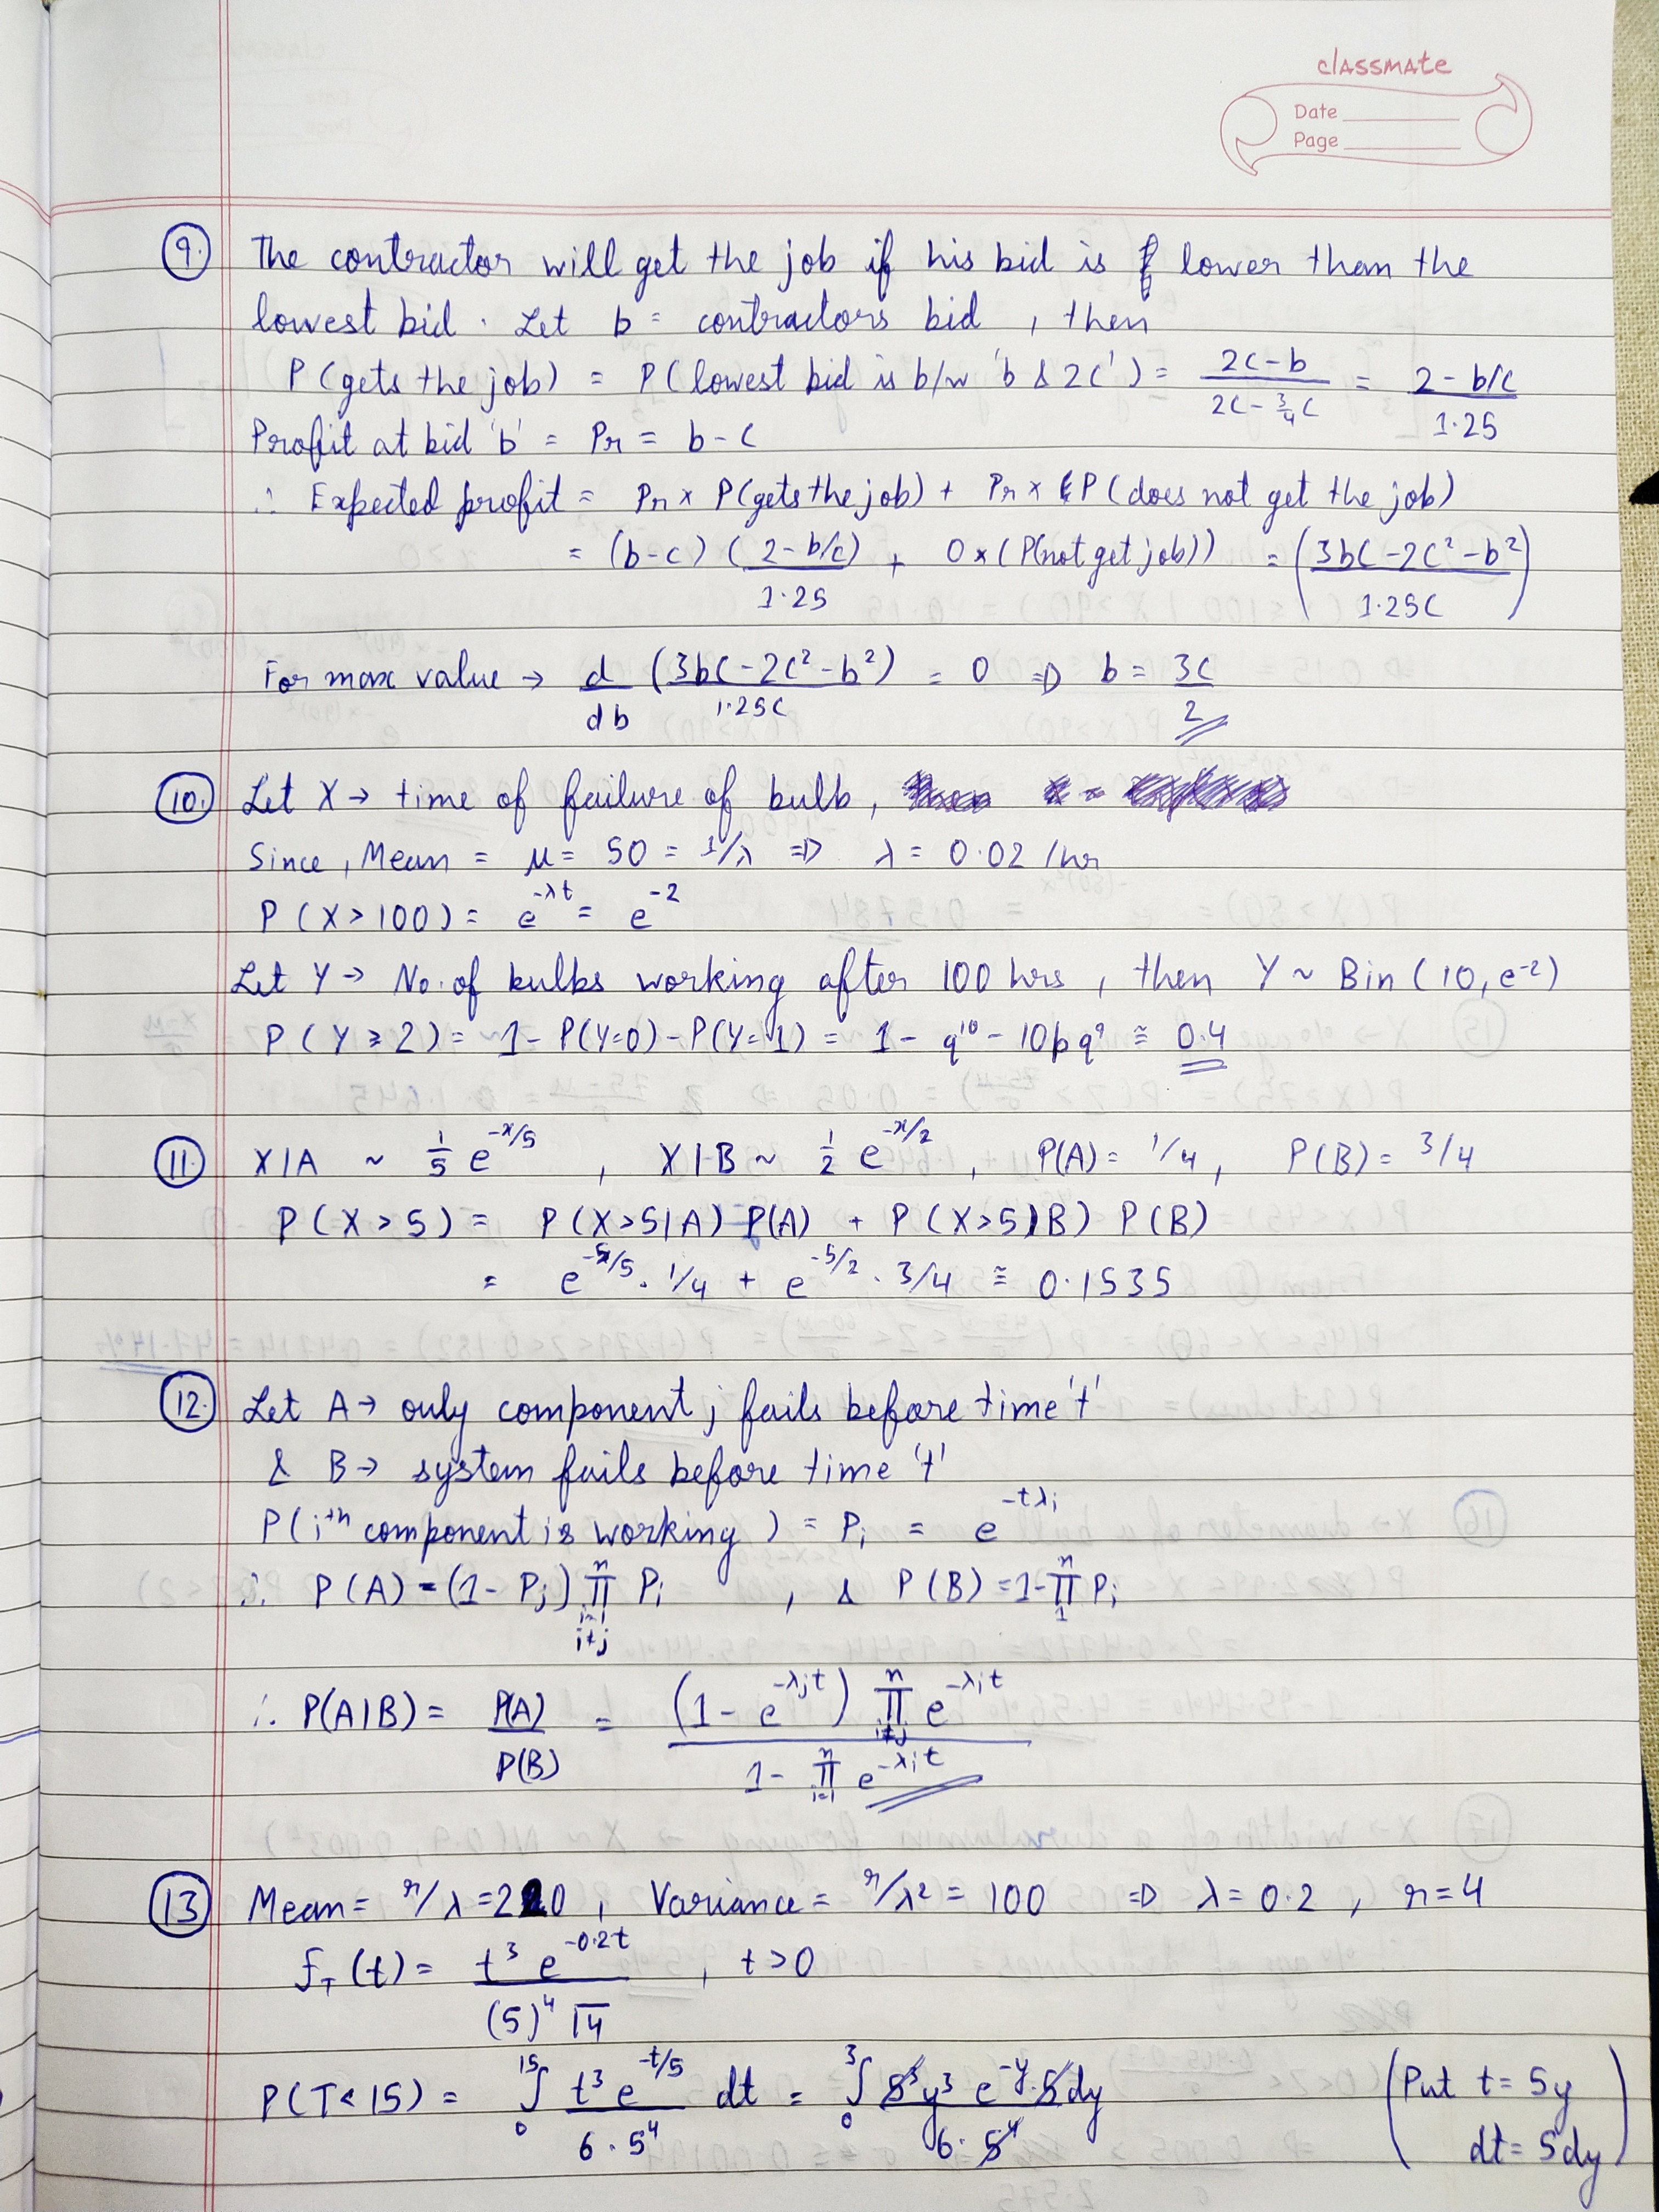 classmate
Date
Page
9. The contractor will get the job if his bid is lower than the
lowest bid. Let b = contractors bid, then
P(gets the job) = P(lowest bid is b/w 'b & 2C') = (2C-b)/(2C-3/4C) = (2-b/C)/1.25
Profit at bid 'b' = Pr = b-C
∴ Expected profit = Pr x P(gets the job) + Pr x P(does not get the job)
= (b-c) (2-b/c)/1.25 + 0x(P(not get job)) = ((3bC-2C²-b²)/1.25C)
For max value → d/db (3bC-2C²-b²)/1.25C = 0 ⇒ b = 3C/2
10. Let X → time of failure of bulb,
Since, Mean = μ = 50 = 1/λ ⇒ λ = 0.02 /hr
P(X>100) = e^(-λt) = e^(-2)
Let Y → No. of bulbs working after 100 hrs, then Y ~ Bin(10, e^(-2))
P(Y≥2) = 1-P(Y=0)-P(Y=1) = 1-q^10-10pq^9 ≅ 0.4
11 X|A ~ 1/5 e^(-x/5), X|B ~ 1/2 e^(-x/2), P(A) = 1/4, P(B) = 3/4
P(X>5) = P(X>5|A) P(A) + P(X>5|B) P(B)
= e^(-5/5) . 1/4 + e^(-5/2) . 3/4 ≅ 0.1535
12. Let A → only component j fails before time 't'
& B → system fails before time 't'
P(i^th component is working) = Pi = e^(-tλi)
∴ P(A) = (1-Pj) ∏_{i=1, i≠j}^n Pi, & P(B) = 1-∏_1^n Pi
∴ P(A|B) = P(A)/P(B) = ((1-e^(-λjt)) ∏_{i≠j}^n e^(-λit))/(1-∏_{i=1}^n e^(-λit))
13 Mean = r/λ = 20, Variance = r/λ² = 100 ⇒ λ = 0.2, r = 4
f_T(t) = (t³ e^(-0.2t))/((5)^4 Γ4), t>0
P(T<15) = ∫_0^15 (t³ e^(-t/5))/(6.5^4) dt = ∫_0^3 (5³y³ e^(-y).5dy)/(6.5^4) (Put t = 5y
dt = 5dy)